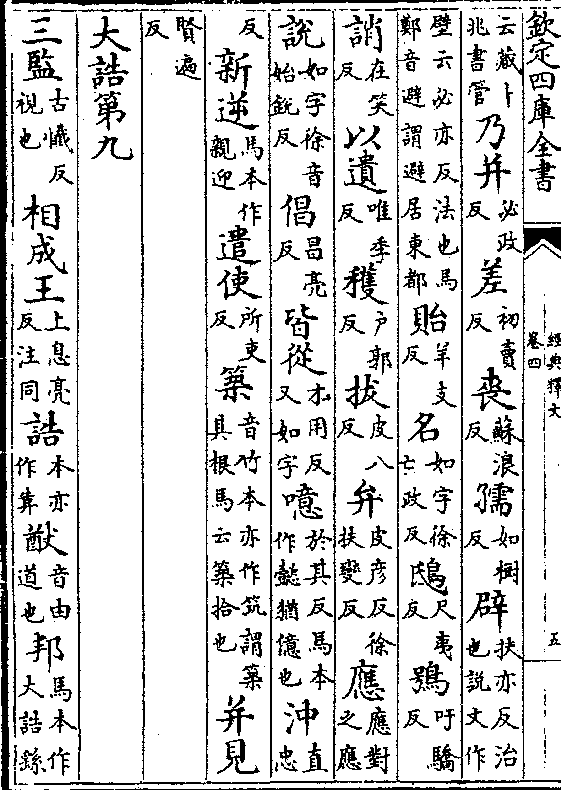 欽定四庫全書
經典釋文
卷四
五
云藏卜兆書管乃并必政反差初賣反喪蘇浪反孺如樹反辟扶亦反治也說文作
壁云必亦反法也馬鄭音避謂避居東都貽羊支反名如字徐亡政反鴟尺夷反鴞吁驕反
誚在笑反以遺唯季反穫户郭反拔皮八反弁皮彦反徐扶變反應應對之應
說如字徐音始鋭反倡昌亮反皆從才用反又如字噫於其反馬本作懿猶億也沖直忠
反新逆馬本作親迎遣使所吏反築音竹本亦作筑謂築具根馬云築拾也并見
賢遍反
大誥第九
三監古懺反視也相成王上息亮反注同誥本亦作猷音由道也邦馬本作大誥繇